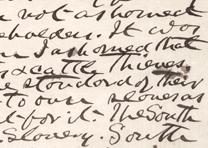 not ashamed
beholden. It was
am I ashamed that
& cattle thieves
standard of their
to own negroes as
for it. The South
Slavery. South